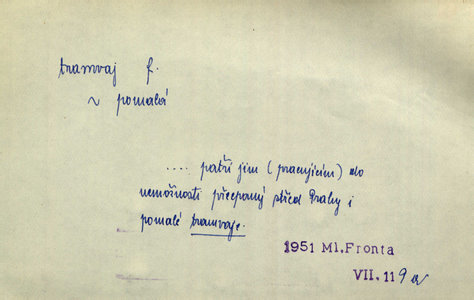 tramvaj f.
~ pomalá
.... patří jim (pracujícím) do
nemožnosti přecpaný střed Prahy i
pomalé tramvaje.
1951 Ml.Fronta
VII. 119